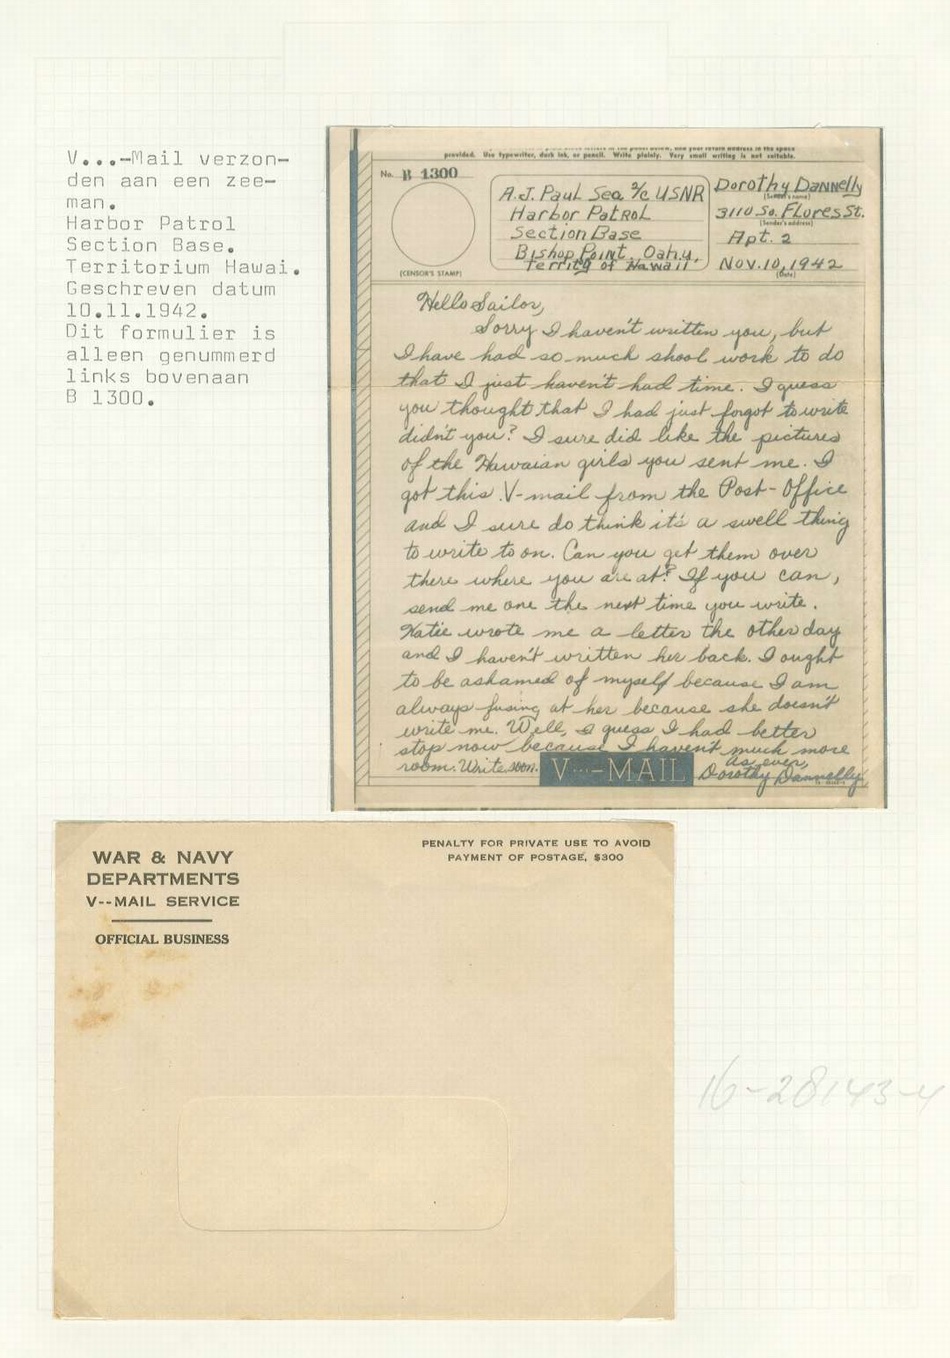 V...-Mail verzon-
den aan een zee-
man.
Harbor Patrol
Section Base.
Territorium Hawai.
Geschreven datum
10.11.1942.
Dit formulier is
alleen genummerd
links bovenaan
B 1300.
provided. Use typewriter, dark ink, or pencil. Write plainly. Very small writing is not suitable.
No. B 1300
(CENSOR'S STAMP)
A.J. Paul Sea. 2/c USNR
Harbor Patrol
Section Base
Bishop Point, Oahu,
Territy of Hawaii
Dorothy Dannelly
(Sender's name)
3110 So. Flores St.
(Sender's address)
Apt. 2
Nov. 10, 1942
(Date)
Hello Sailor,
Sorry I haven't written you, but
I have had so much shool work to do
that I just haven't had time. I guess
you thought that I had just forgot to write
didn't you? I sure did like the pictures
of the Hawaian girls you sent me. I
got this V-mail from the Post-Office
and I sure do think it's a swell thing
to write to on. Can you get them over
there where you are at? If you can,
send me one the next time you write.
Katie wrote me a letter the other day
and I haven't written her back. I ought
to be ashamed of myself because I am
always fusing at her because she doesn't
write me. Well, I guess I had better
stop now because I haven't much more
room. Write soon.
As ever,
Dorothy Dannelly
V...-MAIL
WAR & NAVY
DEPARTMENTS
V--MAIL SERVICE
OFFICIAL BUSINESS
PENALTY FOR PRIVATE USE TO AVOID
PAYMENT OF POSTAGE, $300
16-28143-4